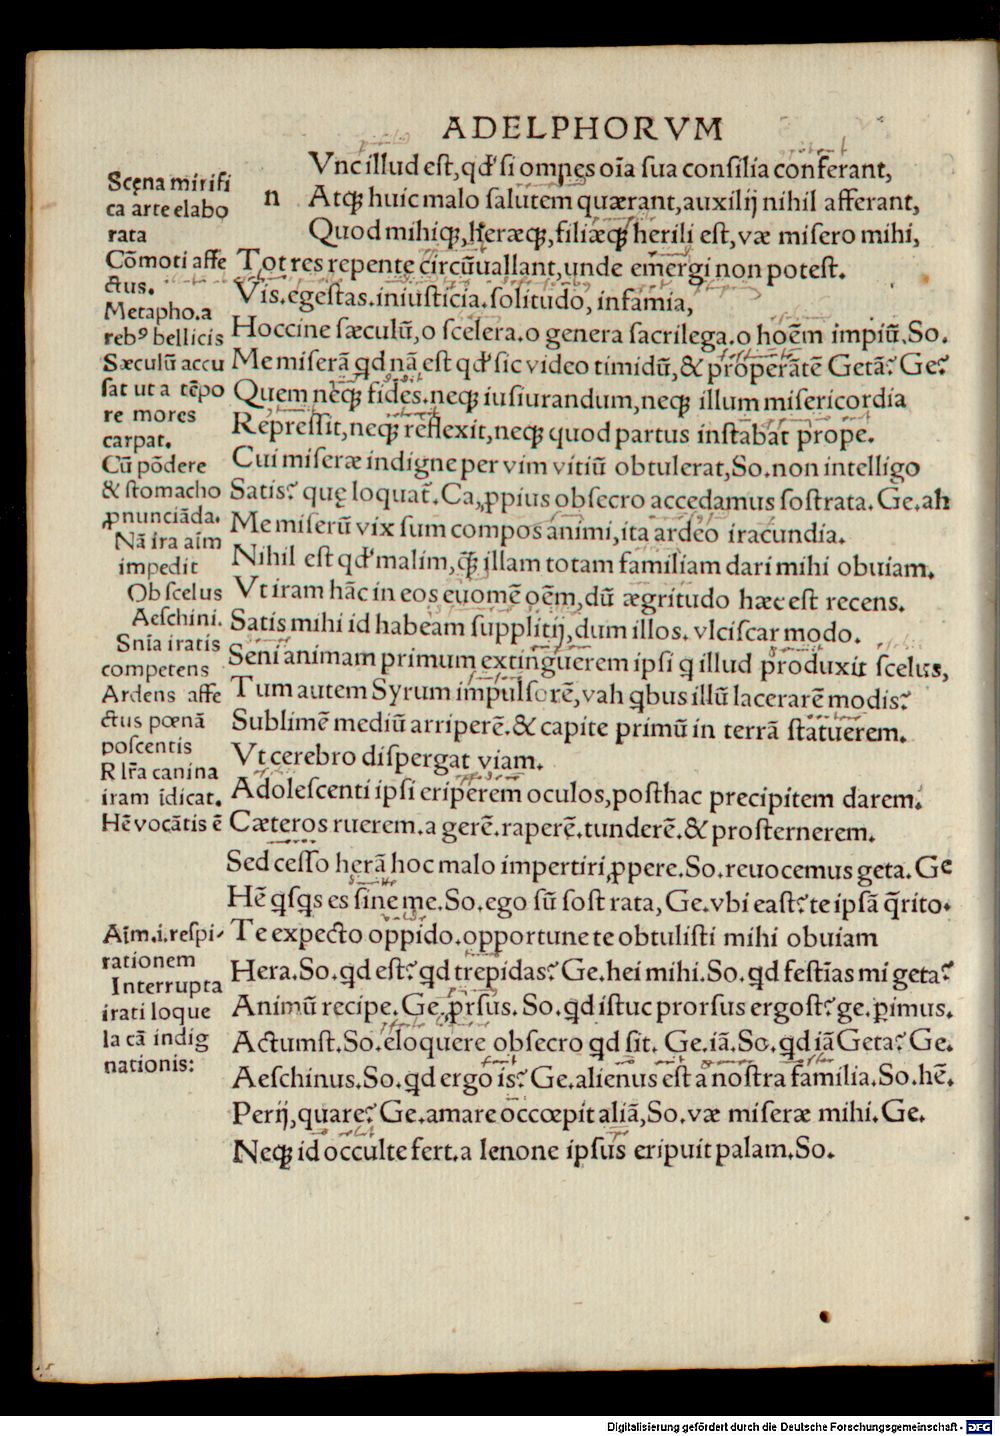 ADELPHORVM
Vnc illud est, qđ si omnes oīa sua consilia conferant,
n Atq; huic malo salutem quærant, auxilij nihil afferant,
Quod mihiq;, heræq;, filiæq; herili est, væ misero mihi,
Tot res repente circūuallant, unde emergi non potest.
Vis. egestas. iniusticia. solitudo, infamia,
Hoccine sæculū, o scelera. o genera sacrilega. o hoēm impiū. So.
Me miserā qd nā est qđ sic video timidū, & properātē Getā? Ge?
Quem neq; fides. neq; iusiurandum, neq; illum misericordia
Repressit, neq; reflexit, neq; quod partus instabat prope.
Cui miseræ indigne per vim vitiū obtulerat, So. non intelligo
Satis? quę loquat̄. Ca, ꝓpius obsecro accedamus sostrata. Ge. ah
Me miserū vix sum compos animi, ita ardeo iracundia.
Nihil est qđ malim, q̄; illam totam familiam dari mihi obuiam.
Vt iram hāc in eos euomē oēm, dū ægritudo hæc est recens.
Satis mihi id habeam supplitij, dum illos. vlciscar modo.
Seni animam primum extinguerem ipsi q illud produxit scelus,
Tum autem Syrum impulsorē, vah qbus illū lacerarē modis?
Sublimē mediū arriperē. & capite primū in terrā statuerem.
Vt cerebro dispergat viam.
Adolescenti ipsi eriperem oculos, posthac precipitem darem.
Cæteros ruerem. a gerē. raperę̄. tunderē. & prosternerem.
Sed cesso herā hoc malo impertiri ꝓpere. So. reuocemus geta. Ge
Hē qsqs es sine me. So. ego sū sost rata, Ge. vbi east? te ipsā q̄rito.
Te expecto oppido. opportune te obtulisti mihi obuiam
Hera. So. qd est? qd trepidas? Ge. hei mihi. So. qd festīas mi geta?
Animū recipe. Ge. ꝓrsus. So. qd istuc prorsus ergost? ge. ꝑimus.
Actumst. So. eloquere obsecro qd sit. Ge. iā. So. qd iā Geta? Ge.
Aeschinus. So. qd ergo is? Ge. alienus est a nostra familia. So. hē.
Perij, quare? Ge. amare occœpit aliā, So. væ miseræ mihi. Ge.
Neq; id occulte fert. a lenone ipsus eripuit palam. So.
Scęna mirifi
ca arte elabo
rata
Cōmoti affe
ctus.
Metapho. a
rebꝰ bellicis
Sæculū accu
sat ut a tēpo
re mores
carpat.
Cū pōdere
& stomacho
ꝓnunciāda.
Nā ira aīm
impedit
Ob scelus
Aeschini.
Snīa iratis
competens
Ardens affe
ctus pœnā
poscentis
R lr̄a canina
iram īdicat.
Hē vocātis ē
Aīm. i. respi-
rationem
Interrupta
irati loque
la cā indig
nationis:
Digitalisierung gefördert durch die Deutsche Forschungsgemeinschaft - DFG